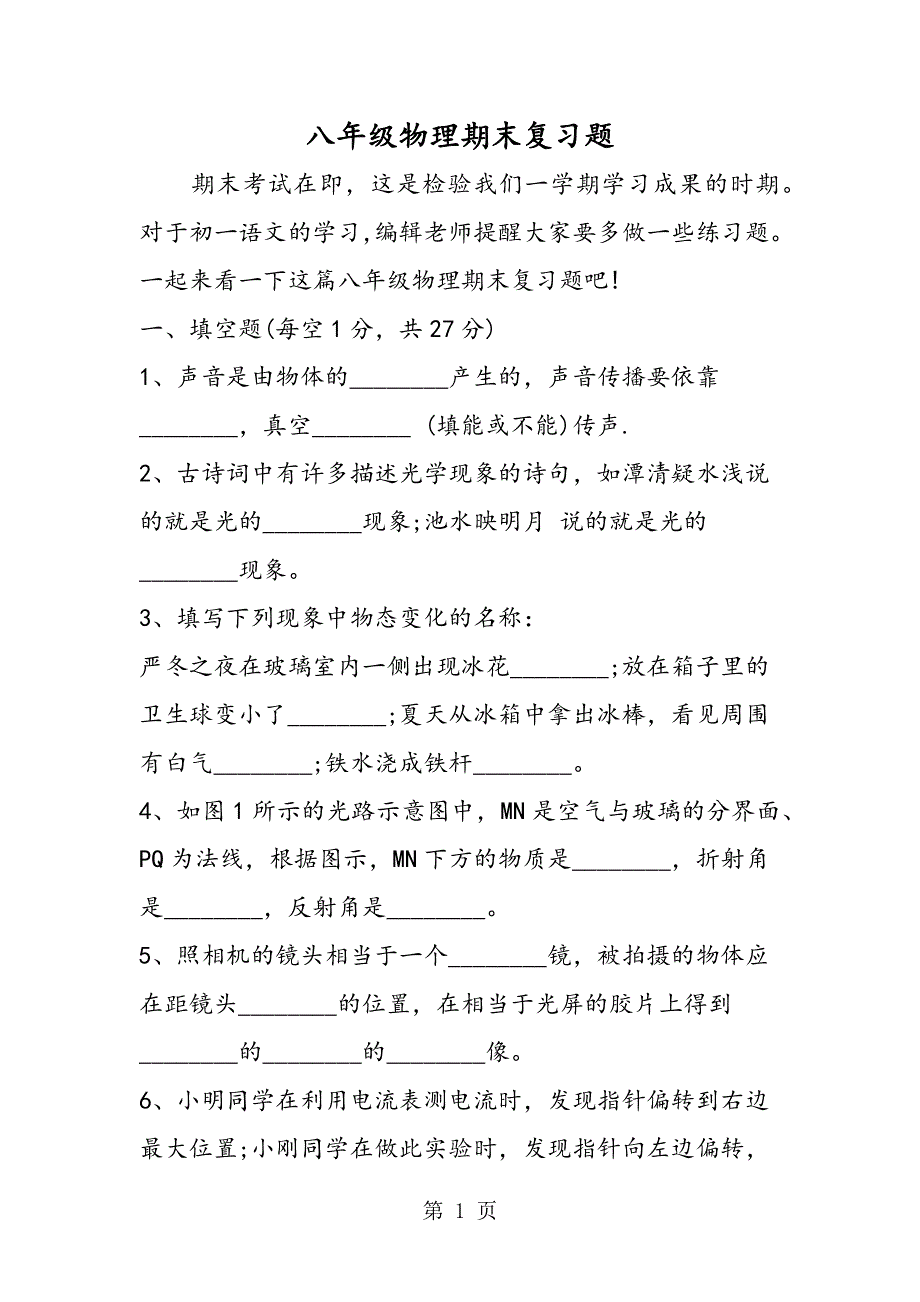 八年级物理期末复习题
期末考试在即，这是检验我们一学期学习成果的时期。
对于初一语文的学习,编辑老师提醒大家要多做一些练习题。
一起来看一下这篇八年级物理期末复习题吧!
一、填空题(每空1分，共27分)
1、声音是由物体的________产生的，声音传播要依靠
________，真空________ (填能或不能)传声.
2、古诗词中有许多描述光学现象的诗句，如潭清疑水浅说
的就是光的________现象;池水映明月 说的就是光的
________现象。
3、填写下列现象中物态变化的名称：
严冬之夜在玻璃室内一侧出现冰花________;放在箱子里的
卫生球变小了________;夏天从冰箱中拿出冰棒，看见周围
有白气________;铁水浇成铁杆________。
4、如图1所示的光路示意图中，MN是空气与玻璃的分界面、
PQ为法线，根据图示，MN下方的物质是________，折射角
是________，反射角是________。
5、照相机的镜头相当于一个________镜，被拍摄的物体应
在距镜头________的位置，在相当于光屏的胶片上得到
________的________的________像。
6、小明同学在利用电流表测电流时，发现指针偏转到右边
最大位置;小刚同学在做此实验时，发现指针向左边偏转，
第 1 页